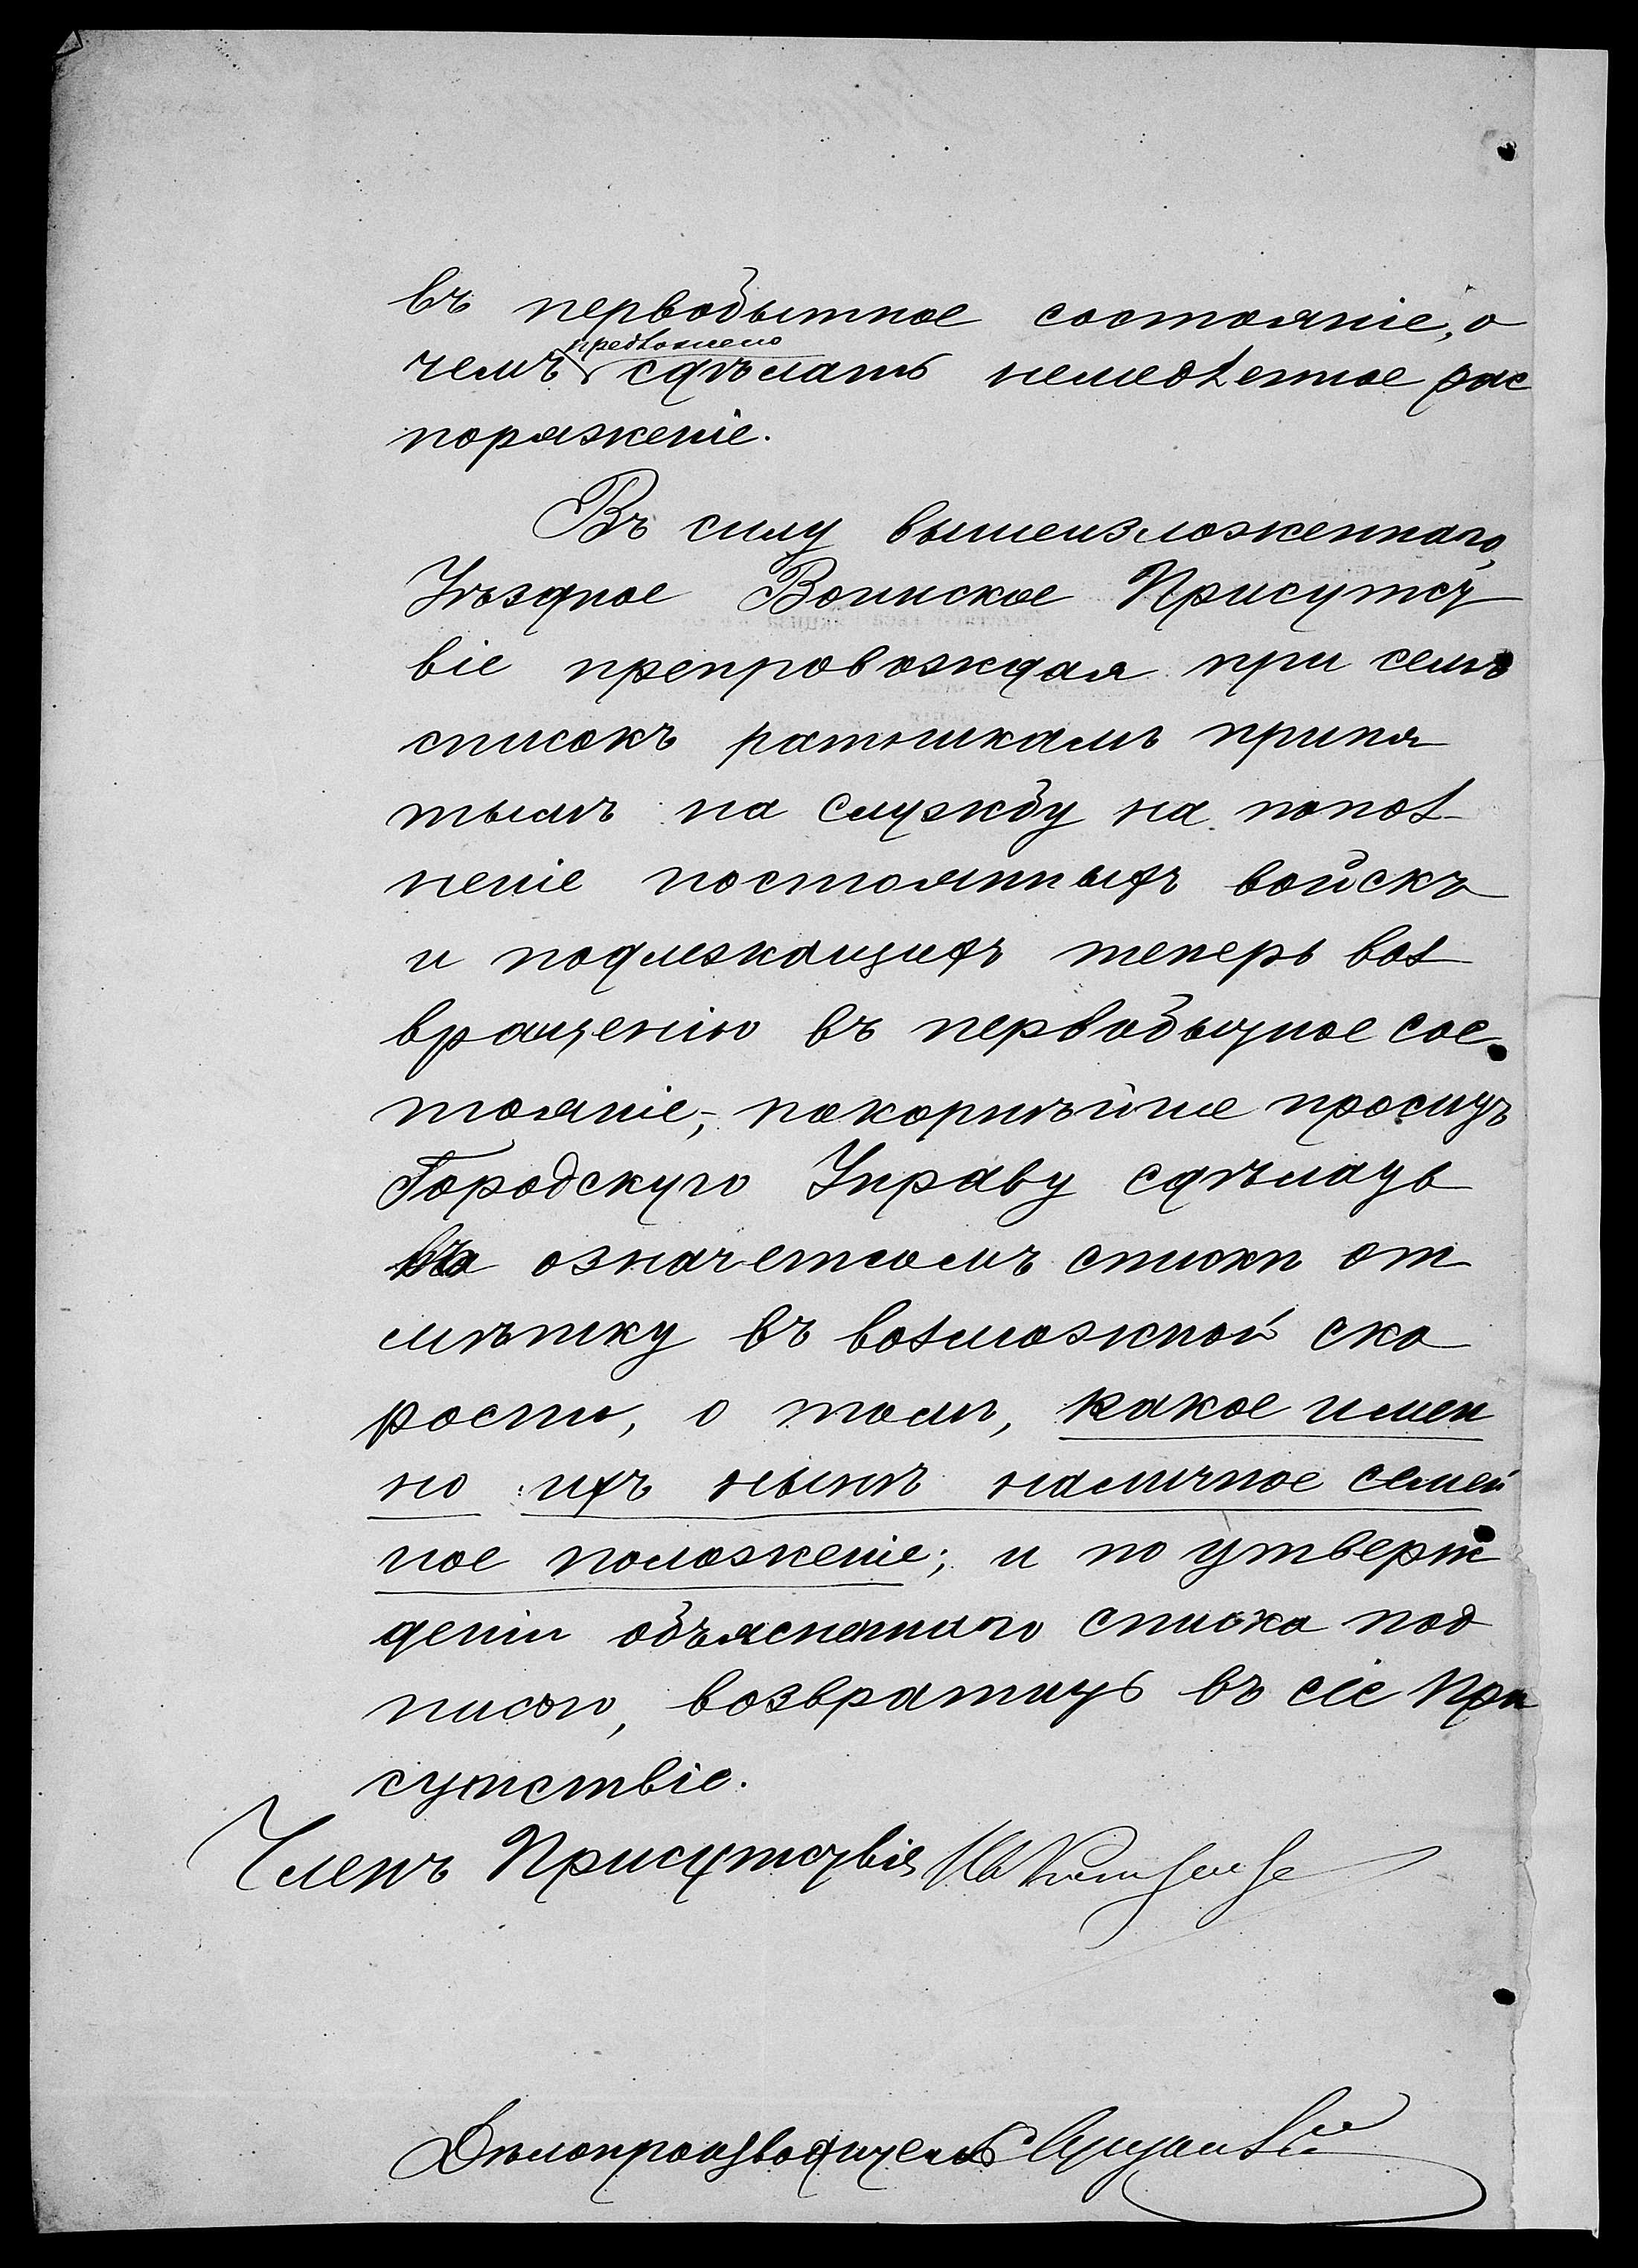 въ первобытное состояніе, о
предложено
чемъ сдѣлать немедленное рас
поряженіе.
Въ силу вышеизложеннаго,
Уѣздное Воинское Присутст
віе препровождая при семъ
списокъ ратникамъ приня
тымъ на службу на попол-
неніе постоянныхъ войскъ
и подлежащихъ теперь воз
вращенію въ первобытное сос
тояніе, покорнѣйше проситъ
Городскую Управу сдѣлать
въ означенномъ списки от
мѣтку въ возможной ско
рости, о томъ, какое имен
но ихъ нынѣ наличное семей
ное положеніе; и по утверж
деніи объясненнаго списка под
писью, возвратить въ сіе При
сутствіе.
Членъ Присутствія
Дѣлопроизводитель